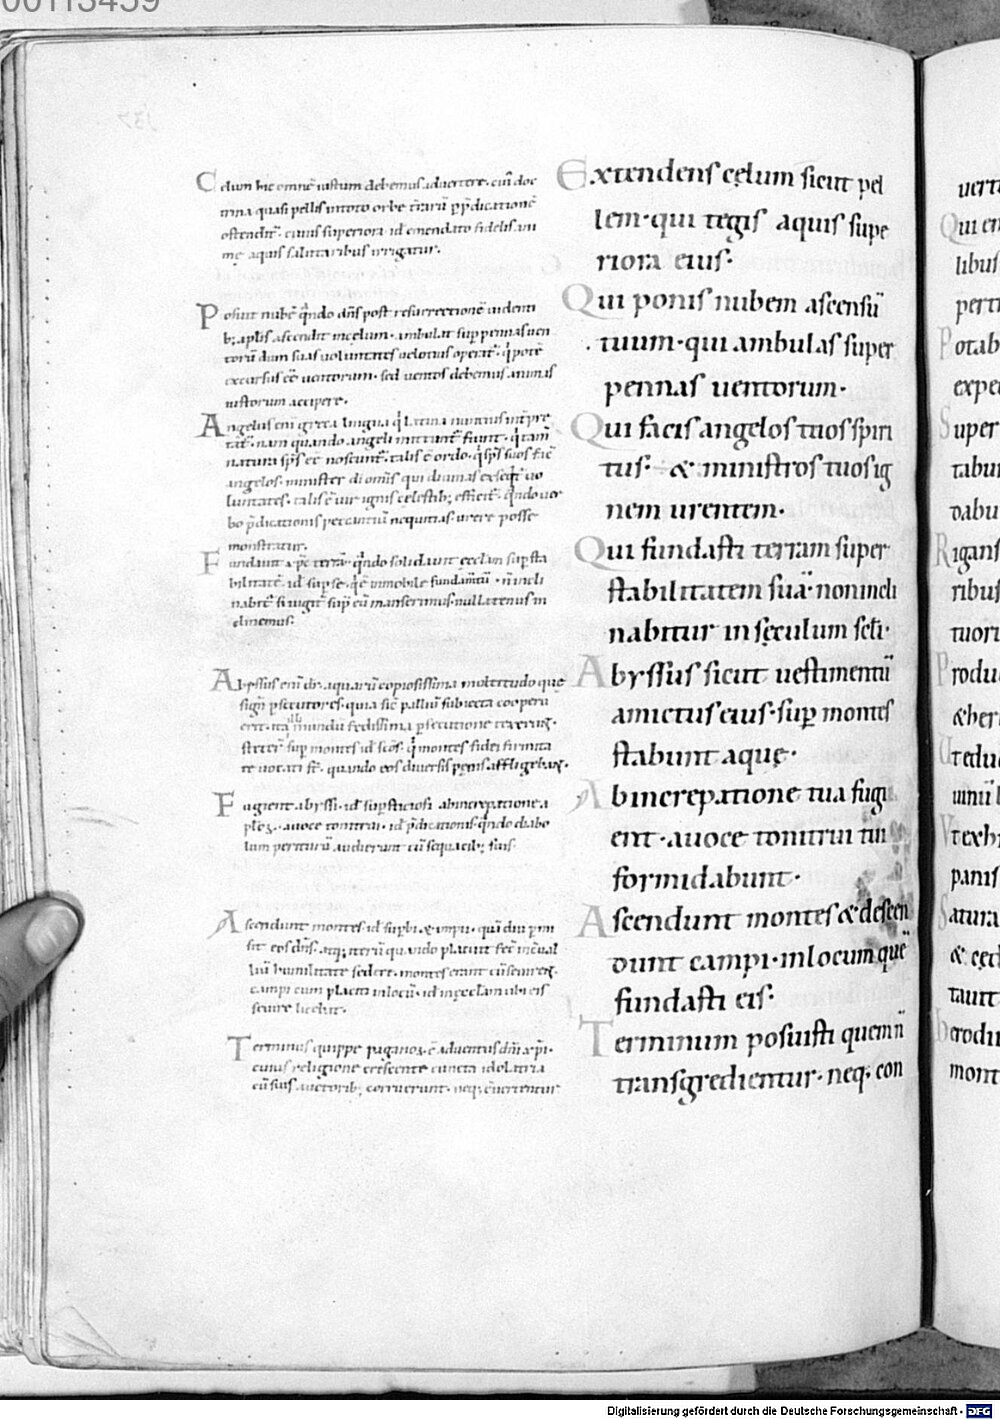 00113459
Celum hic omnē iustum debemus aduertere. cuī doc
trina quasi pellis in toto orbe t̄rarū p̄dicatione
ostendit̄. cuius superiora id emendato fidelis un
aquis salutaribus irrigatur.
Posuit nubē q̄ndo dn̄s post resurrectionē uidenti
b; ap̄lis ascendit in celum. ambulat sup pennas uen
torū dum suas uoluntates uelotius operit̄.
excursus eē uentorum. sed uentos debemus animas
iustorum accipere.
Angelus eni greca lingua q̄ latina nuntius int̄pre
tat̄. nam quando angeli mittunt̄ fiunt.
natura sp̄s eē noscunt̄. talis ē ordo. q̄ sp̄s suos fac̄
angelos. minister di om̄is qui diuinas exseq̄t̄ uo
luntates. talis ē uir ignis celestib; efficit̄. q̄ndo uer
bo p̄dicationis peccantiū nequitias urere posse
monstratur.
Fundauit xp̄c terrā. q̄ndo solidauit ęcclam sup sta
bilitatē. id sup se. q̄ ē inmobile fundam̄tū. n̄ incli
nabit̄ si iugit̄ sup eū manserimus nullatenus in
clinemus.
Abyssus eni dr̄. aquarū copiosissima moltitudo quę
sign̄ p̄secutores. quia sic palliū subiecta cooperu
erit. ita illi mundū fedissima p̄secutione texerunt.
steter̄ sup montes id scō s. q̄ montes fidei firmita
te uocati st̄. quando eos diuersis pęnis affligebant.
Fugient abyssi. id sup̄sticiosi ab increpatione a
a uoce tonitrui. id p̄dicationis q̄ndo diabo
lum periturū audierunt cū sequacib; suis.
Ascendunt montes id sup̄bi & impii. quā diu p̄mi
sit eos dn̄s. atq; iterū quando placuit fec̄ in cual
liū humilitate sedere. montes erant cū seuirent.
campi cum placiti in locū. id in ęcclam ubi eis
seuire licebit.
Terminus quippe paganos. ē aduentus dn̄i xp̄i.
cuius religione crescente cuncta idolatria
cū suis auctorib; corruerunt. neq; cūertentur
Extendens cęlum sicut pel
lem. qui tegis aquis supe
riora eius.
Qui ponis nubem ascensū
tuum. qui ambulas super
pennas uentorum.
Qui facis angelos tuos spiri
tus. & ministros tuos ig
nem urentem.
Qui fundasti terram super
stabilitatem suā. non incli
nabitur in sęculum scli.
Abyssus sicut uestimentū
amictus eius. sup montes
stabunt aquę.
Ab increpatione tua fugi
ent. a uoce tonitrui tui
formidabunt.
Ascendunt montes & descen
dunt campi. in locum quē
fundasti eis.
Terminum posuisti quem n̄
transgredientur. neq; con
Qui em
libus
pert
Potab
expe
Super
tabu
dabu
Rigans
ribus
tuori
Produ
&her
Ut edu
uinū l
Ut exh
panis
Satura
& ced
mont
Digitalisierung gefördert durch die Deutsche Forschungsgemeinschaft - DFG